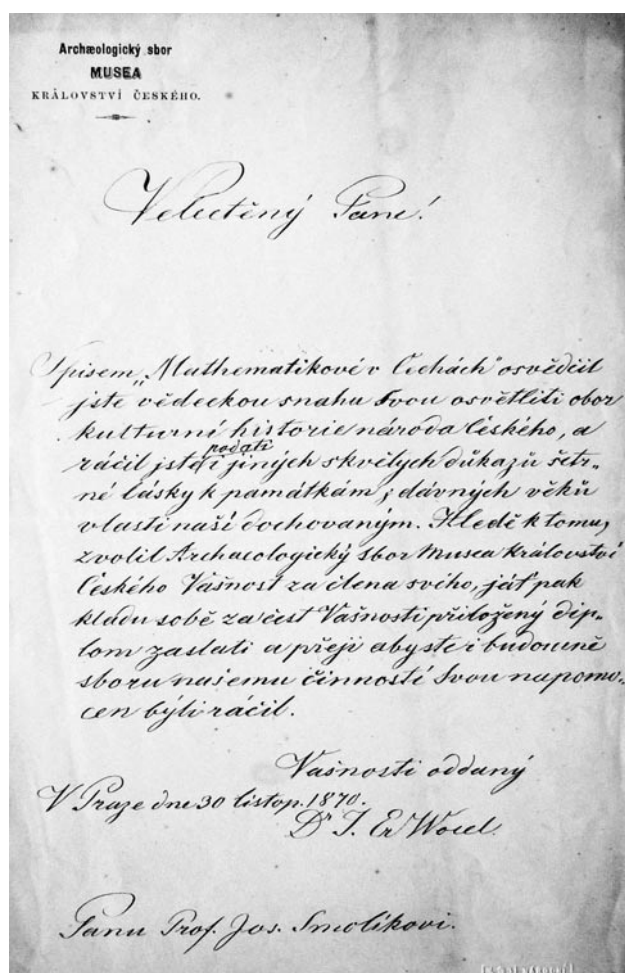 Archæologický sbor
MUSEA
KRÁLOVSTVÍ ČESKÉHO.
Velectěný Pane!
Spisem „Mathematikové v Čechách" osvědčil
jste vědeckou snahu Svou osvětliti obor
kulturní historie národa českého, a
podati
ráčil jste i jiných skvělých důkazů šetr„
né lásky k památkám, z dávných věků
vlasti naší dochovaným. Hledě k tomu,
zvolil Archaeologický sbor Musea Království
Českého Vašnost za člena svého, jáť pak
kladu sobě za čest Vašnosti přiložený dip„
lom zaslati a přeji abyste i budoucně
sboru našemu činností Svou nápomo„
cen býti ráčil.
Vašnosti oddaný
V Praze dne 30 listop. 1870.
Dr J. Er Wocel.
Panu Prof. Jos. Smolíkovi.